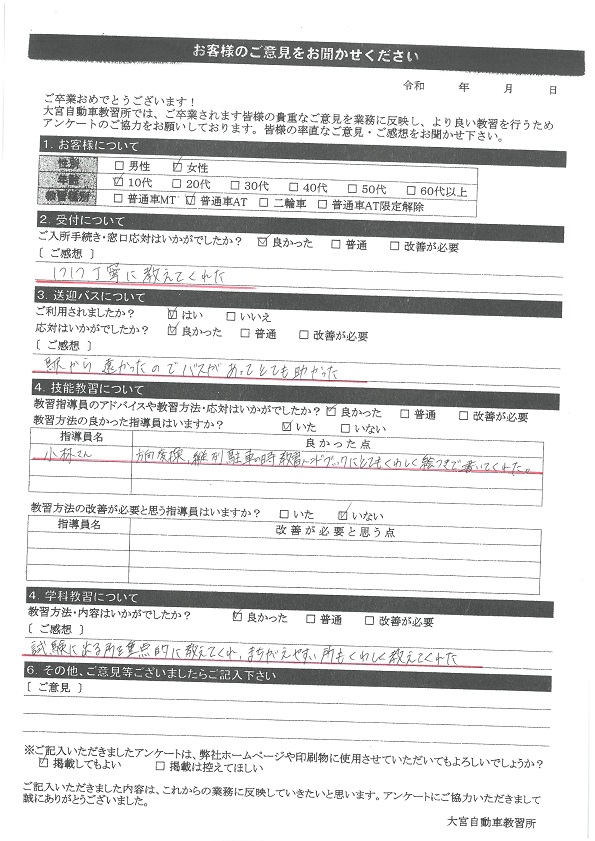 お客様のご意見をお聞かせください
令和 年 月 日
ご卒業おめでとうございます！
大宮自動車教習所では、ご卒業されます皆様の貴重なご意見を業務に反映し、より良い教習を行うため
アンケートのご協力をお願いしております。皆様の率直なご意見・ご感想をお聞かせ下さい。
1. お客様について
性別 □ 男性 ☑ 女性
年齢 ☑ 10代 □ 20代 □ 30代 □ 40代 □ 50代 □ 60代以上
教習種別 □ 普通車MT ☑ 普通車AT □ 二輪車 □ 普通車AT限定解除
2. 受付について
ご入所手続き・窓口応対はいかがでしたか？ ☑ 良かった □ 普通 □ 改善が必要
［ ご感想 ］
1つ1つ丁寧に教えてくれた
3. 送迎バスについて
ご利用されましたか？ ☑ はい □ いいえ
応対はいかがでしたか？ ☑ 良かった □ 普通 □ 改善が必要
［ ご感想 ］
駅から遠かったのでバスがあってとても助かった
4. 技能教習について
教習指導員のアドバイスや教習方法・応対はいかがでしたか？ ☑ 良かった □ 普通 □ 改善が必要
教習方法の良かった指導員はいますか？ ☑ いた □ いない
指導員名 良かった点
小林さん 方向変換、縦列駐車の時教習ハンドブックにとてもくわしく絵つきで書いてくれた。
教習方法の改善が必要と思う指導員はいますか？ □ いた ☑ いない
指導員名 改善が必要と思う点
4. 学科教習について
教習方法・内容はいかがでしたか？ ☑ 良かった □ 普通 □ 改善が必要
［ ご感想 ］
試験に出る所を重点的に教えてくれ、まちがえやすい所もくわしく教えてくれた
6. その他、ご意見等ございましたらご記入下さい
［ ご意見 ］
※ご記入いただきましたアンケートは、弊社ホームページや印刷物に使用させていただいてもよろしいでしょうか？
☑ 掲載してもよい □ 掲載は控えてほしい
ご記入いただきました内容は、これからの業務に反映していきたいと思います。アンケートにご協力いただきまして
誠にありがとうございました。
大宮自動車教習所